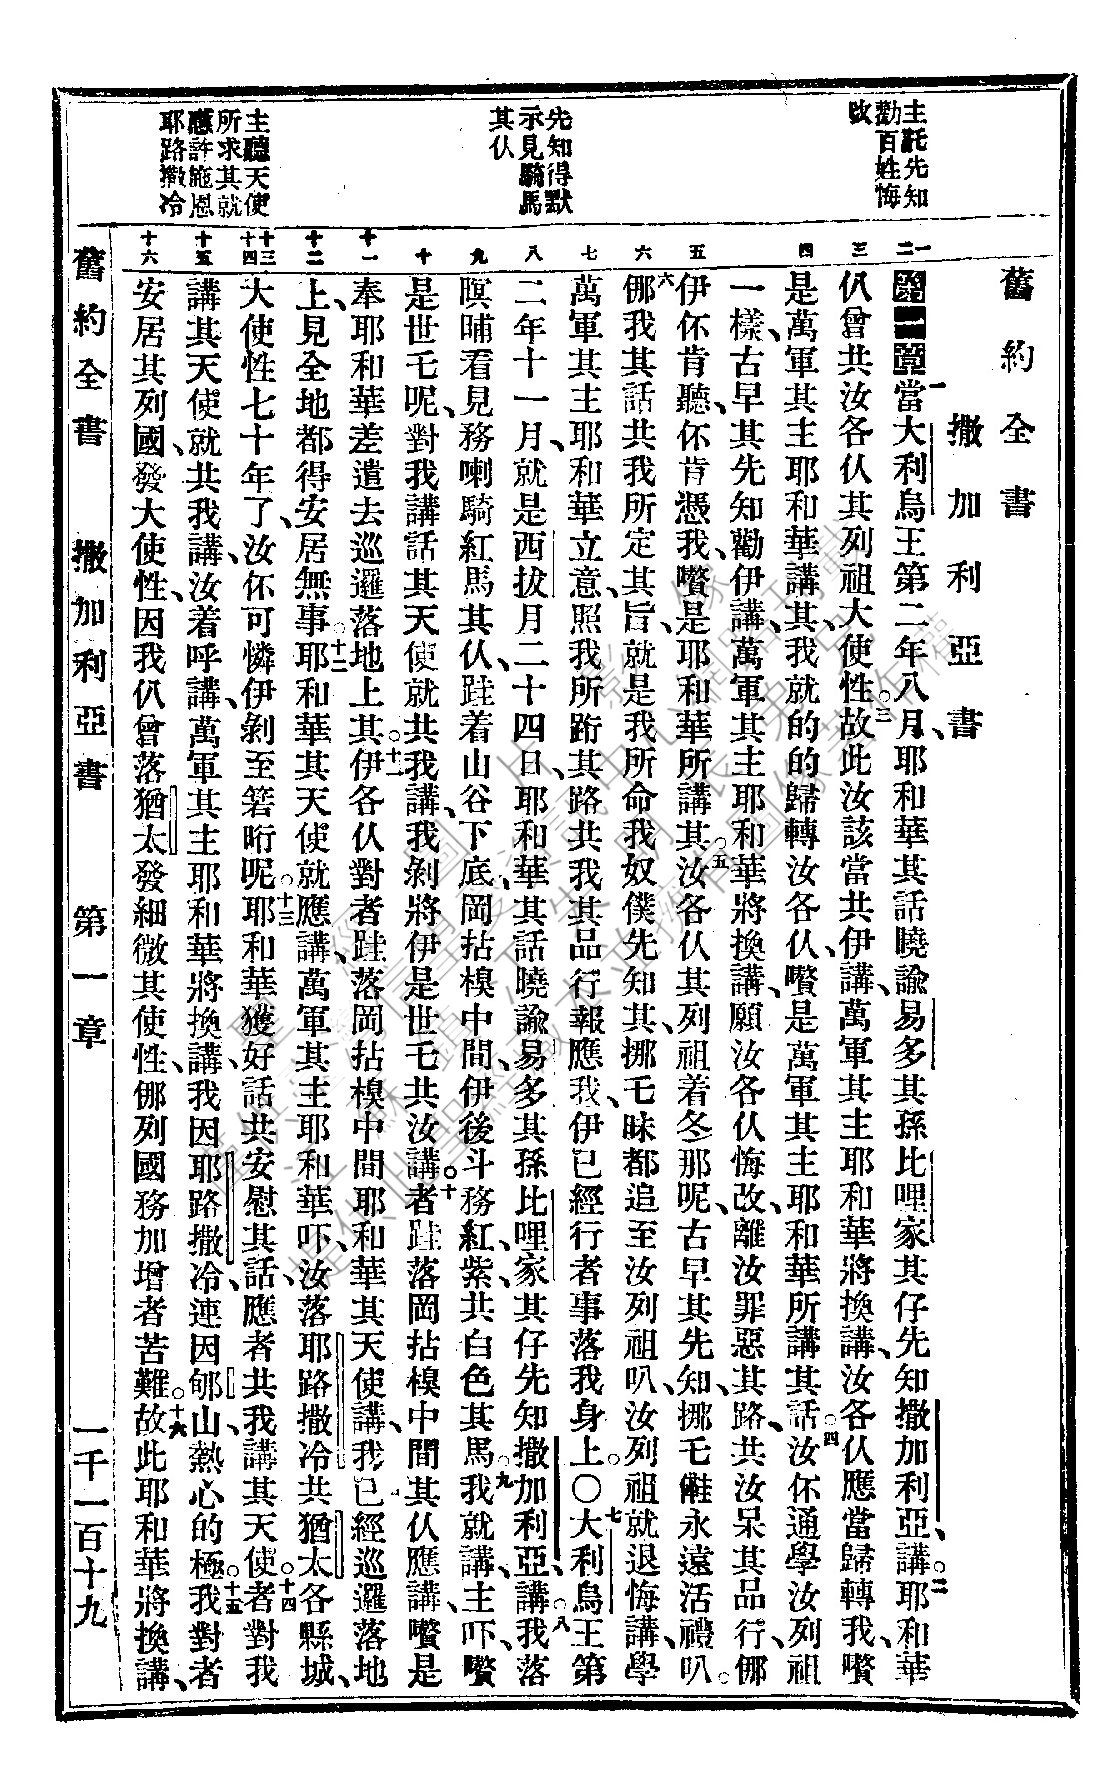 舊約全書
撒加利亞書
主託先知
勸百姓悔
改
先知得默
示見騎馬
其仈
主聽天使
所求其就
應許施恩
耶路撒冷
一 二 三 四 五 六 七 八 九 十 十一 十二 十三 十四 十五 十六
第一章當大利烏王第二年八月、耶和華其話曉諭易多其孫比哩家其仔先知撒加利亞、講、二耶和華
仈曾共汝各仈其列祖大使性。三故此汝該當共伊講、萬軍其主耶和華將換講、汝各仈應當歸轉我、嚽
是萬軍其主耶和華講其、我就的的歸轉汝各仈、嚽是萬軍其主耶和華所講其話。四汝伓通學汝列祖
一樣、古早其先知勸伊講、萬軍其主耶和華將換講、願汝各仈悔改、離汝罪惡其路、共汝呆其品行、㑚
伊伓肯聽、伓肯憑我、嚽是耶和華所講其。五汝各仈其列祖着冬那呢、古早其先知、挪乇䧹永遠活禮叭。
六㑚我其話共我所定其旨、就是我所命我奴僕先知其、挪乇昧都追至汝列祖叭、汝列祖就退悔講、學
萬軍其主耶和華立意、照我所跡其路共我其品行報應我、伊已經行者事落我身上。〇七大利烏王第
二年十一月、就是西拔月二十四日、耶和華其話曉諭易多其孫比哩家其仔先知撒加利亞講。八我落
暝晡看見務喇騎紅馬其仈、跬着山谷下底、岡拈模中間、伊後斗務紅、紫、共白色其馬。九我就講、主吓、嚽
是世乇呢、對我講話其天使就共我講、我剝將伊是世乇共汝講。十者跬落岡拈模中間其仈應講、嚽是
奉耶和華差遣去巡邏落地上其。十一伊各仈對者跬落岡拈模中間耶和華其天使講、我已經巡邏落地
上、見全地都得安居無事。十二耶和華其天使就應講、萬軍其主耶和華吓、汝落耶路撒冷共猶太各縣城、
大使性七十年了、汝伓可憐伊剝至䇠晰呢。十三耶和華獲好話共安慰其話、應者共我講其天使。十四者對我
講其天使就共我講、汝着呼講、萬軍其主耶和華將換講、我因耶路撒冷、連因郇山、熱心的極。十五我對者
安居其列國、發大使性、因我仈曾落猶太發細微其使性、㑚列國務加增者苦難。十六故此耶和華將換講、
舊約全書 撒加利亞書 第一章 一千一百十九